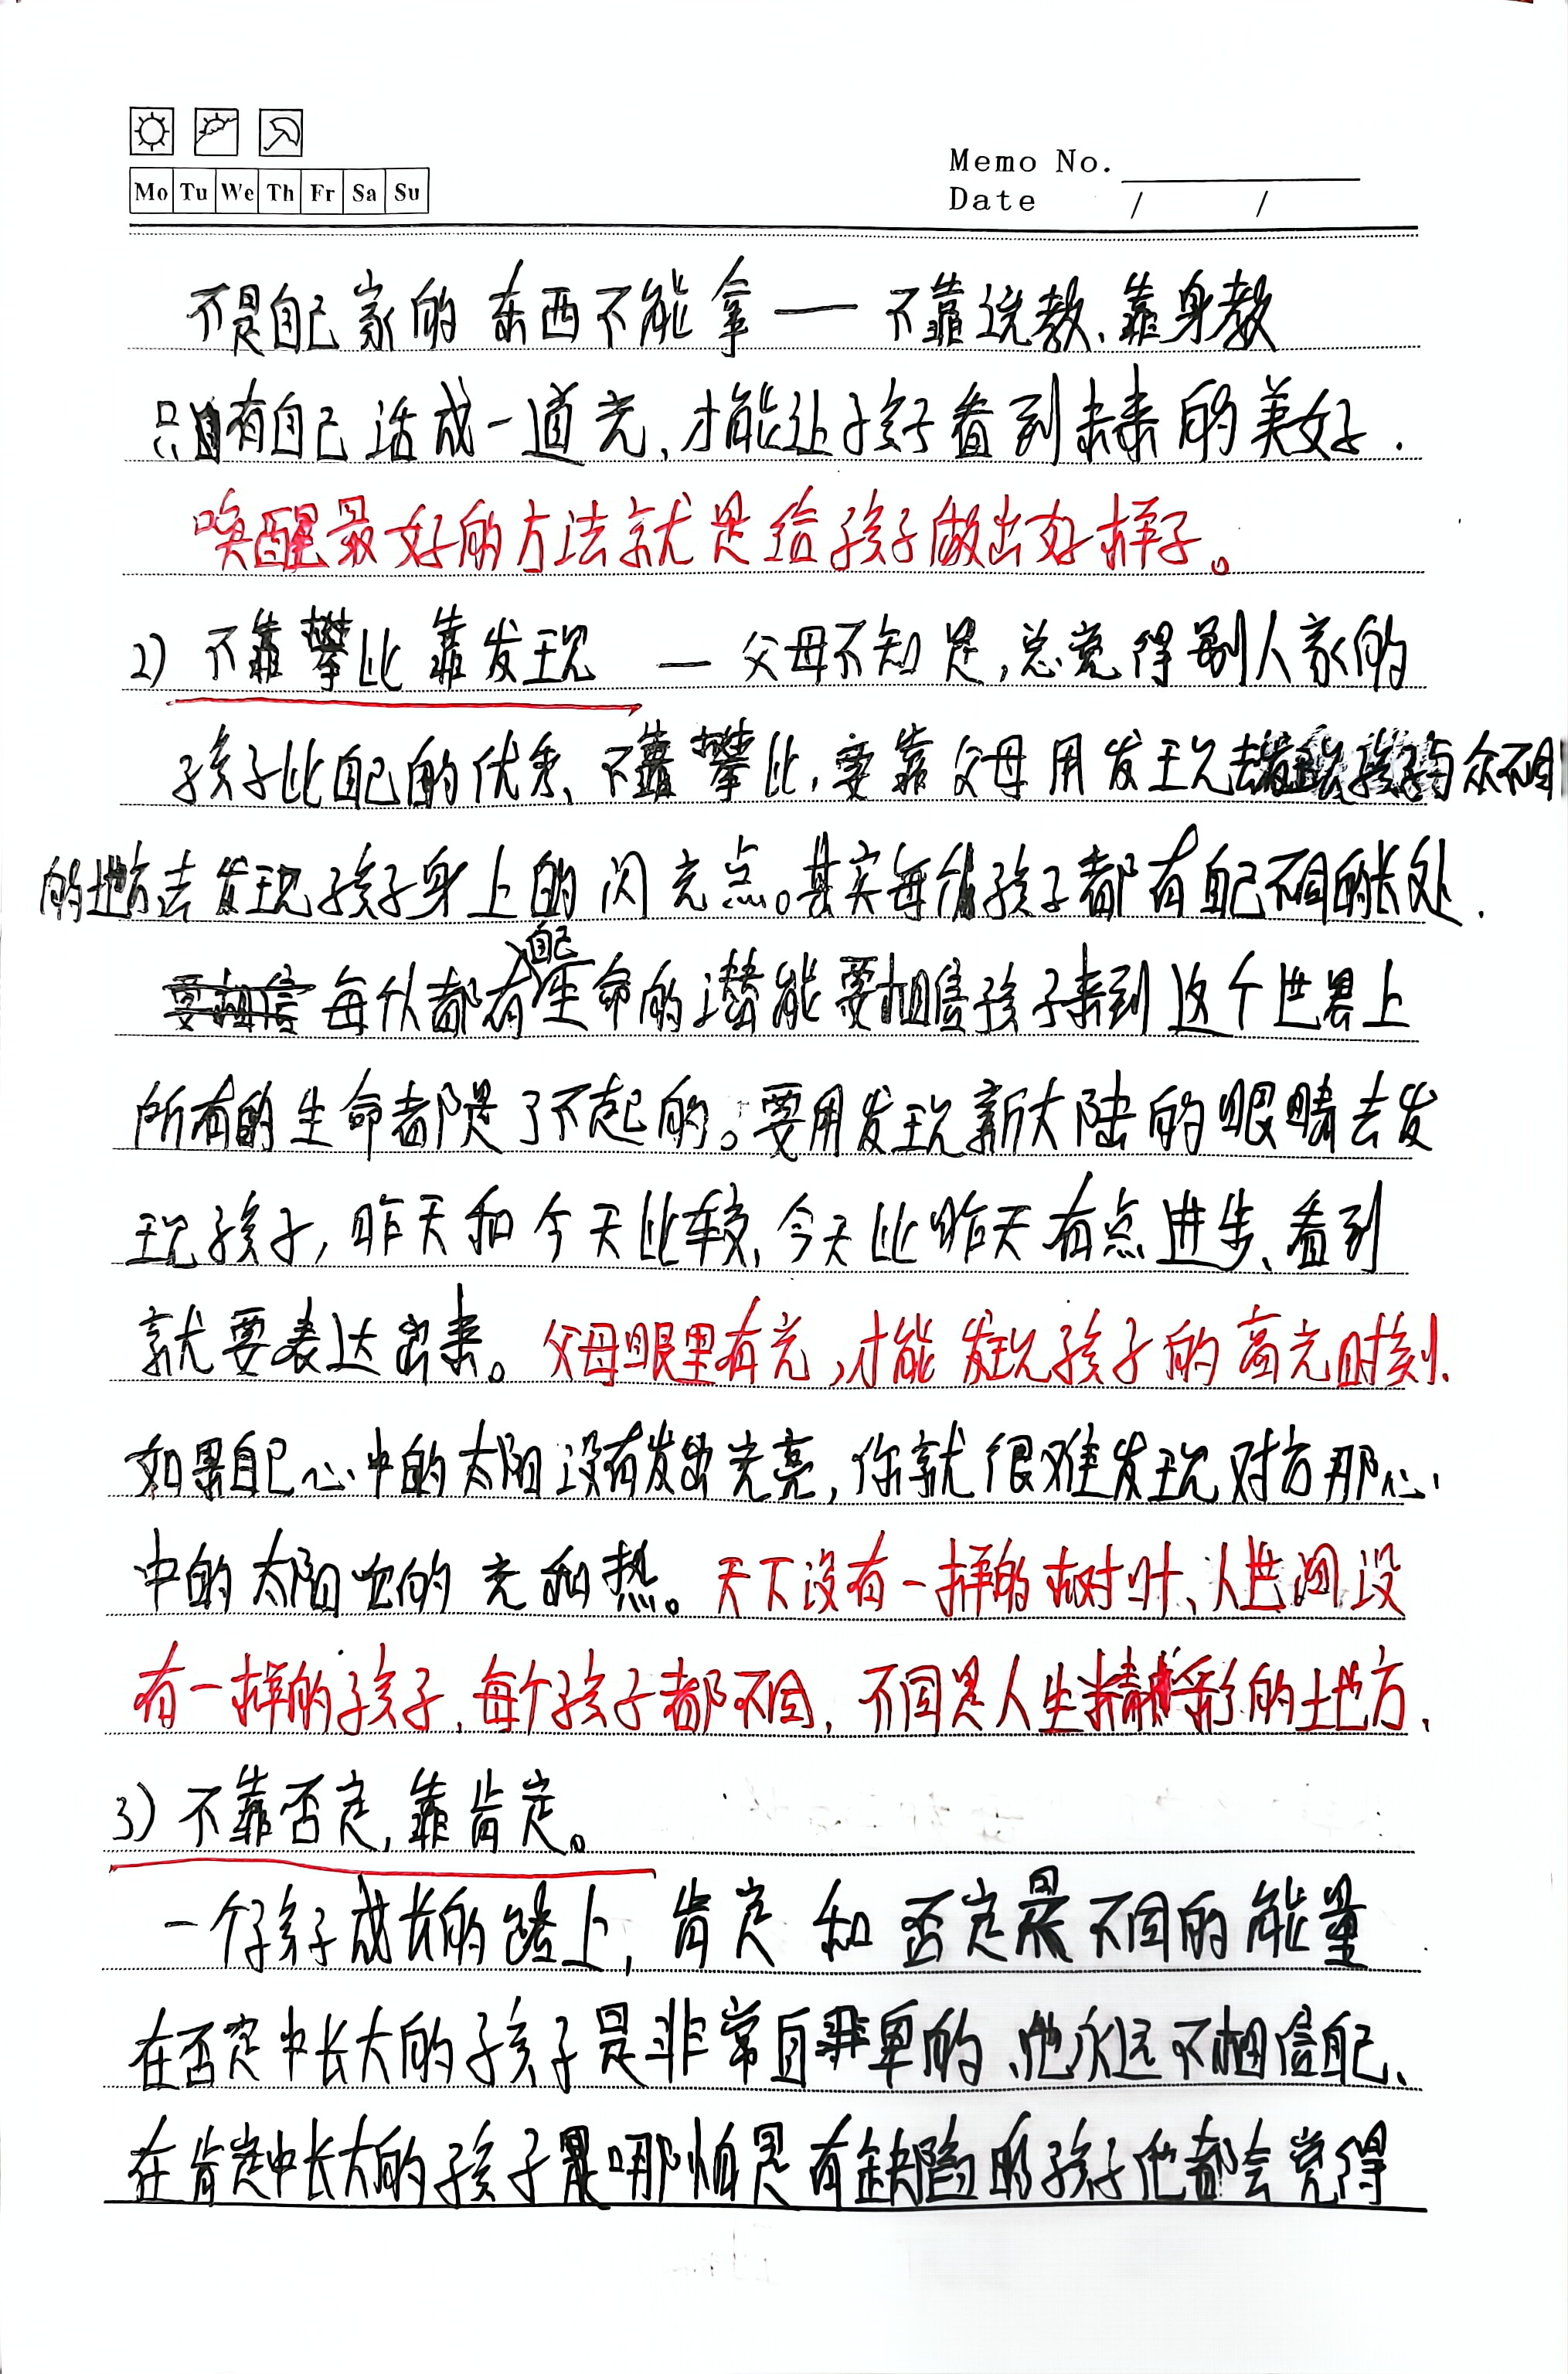 Memo No.
Mo Tu We Th Fr Sa Su
Date / /
不是自己家的东西不能拿——不靠说教、靠身教
只有自己活成一道光,才能让孩子看到未来的美好.
唤醒最好的方法就是给孩子做出好样子。
2) 不靠攀比 靠发现 — 父母不知足,总觉得别人家的
孩子比自己的优秀、不靠攀比,要靠父母用发现去 与众不同
的地方去发现孩子身上的闪光点。其实每个孩子都有自己不同的长处.
每个都有自己生命的潜能要相信孩子来到这个世界上
所有的生命都是了不起的。要用发现新大陆的眼睛去发
现孩子,昨天和今天比较,今天比昨天有点进步、看到
就要表达出来。父母眼里有光,才能发现孩子的高光时刻.
如果自己心中的太阳没有发出光亮,你就很难发现对方那心
中的太阳它的光和热。天下没有一样的树叶、人世间没
有一样的孩子,每个孩子都不同,不同是人生精彩的地方.
3) 不靠否定,靠肯定。
一个孩子成长的路上,肯定和否定是不同的能量
在否定中长大的孩子是非常自卑的、他永远不相信自己、
在肯定中长大的孩子是哪怕是有缺陷的孩子他都会觉得